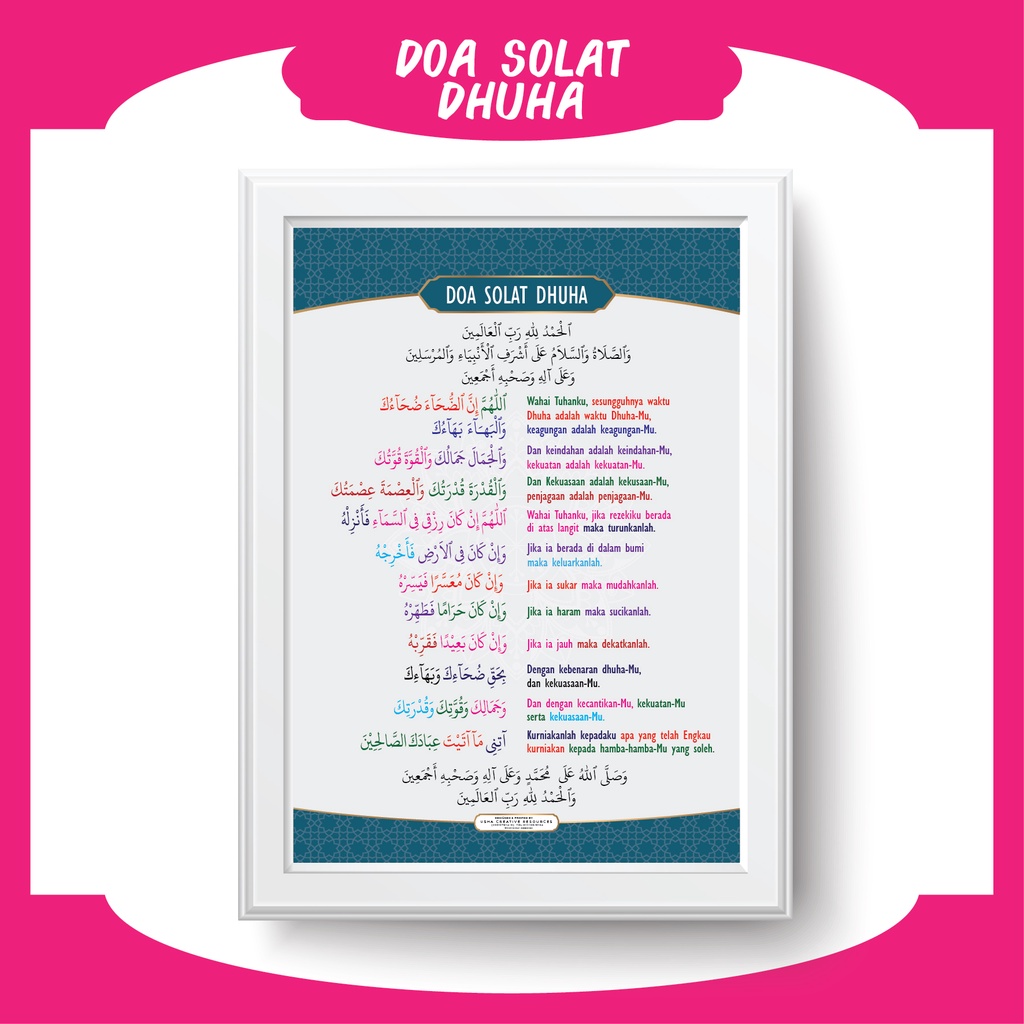 DOA SOLAT
DHUHA
DOA SOLAT DHUHA
اَلْحَمْدُ لِلّٰهِ رَبِّ الْعَالَمِينَ
وَالصَّلَاةُ وَالسَّلَامُ عَلَى أَشْرَفِ الْأَنْبِيَاءِ وَالْمُرْسَلِينَ
وَعَلَى آلِهِ وَصَحْبِهِ أَجْمَعِينَ
اَللّٰهُمَّ إِنَّ الضُّحَآءَ ضُحَاءُكَ
وَالْبَهَآءَ بَهَاءُكَ
Wahai Tuhanku, sesungguhnya waktu
Dhuha adalah waktu Dhuha-Mu,
keagungan adalah keagungan-Mu.
وَالْجَمَالَ جَمَالُكَ وَالْقُوَّةَ قُوَّتُكَ
Dan keindahan adalah keindahan-Mu,
kekuatan adalah kekuatan-Mu.
وَالْقُدْرَةَ قُدْرَتُكَ وَالْعِصْمَةَ عِصْمَتُكَ
Dan Kekuasaan adalah kekusaan-Mu,
penjagaan adalah penjagaan-Mu.
اَللّٰهُمَّ إِنْ كَانَ رِزْقِى فِى السَّمَآءِ فَأَنْزِلْهُ
Wahai Tuhanku, jika rezekiku berada
di atas langit maka turunkanlah.
وَإِنْ كَانَ فِى الْاَرْضِ فَأَخْرِجْهُ
Jika ia berada di dalam bumi
maka keluarkanlah.
وَإِنْ كَانَ مُعَسَّرًا فَيَسِّرْهُ
Jika ia sukar maka mudahkanlah.
وَإِنْ كَانَ حَرَامًا فَطَهِّرْهُ
Jika ia haram maka sucikanlah.
وَإِنْ كَانَ بَعِيْدًا فَقَرِّبْهُ
Jika ia jauh maka dekatkanlah.
بِحَقِّ ضُحَآءِكَ وَبَهَآءِكَ
Dengan kebenaran dhuha-Mu,
dan kekuasaan-Mu.
وَجَمَالِكَ وَقُوَّتِكَ وَقُدْرَتِكَ
Dan dengan kecantikan-Mu, kekuatan-Mu
serta kekuasaan-Mu.
آتِنِى مَآ آتَيْتَ عِبَادَكَ الصَّالِحِيْنَ
Kurniakanlah kepadaku apa yang telah Engkau
kurniakan kepada hamba-hamba-Mu yang soleh.
وَصَلَّى اللهُ عَلَى مُحَمَّدٍ وَعَلَى آلِهِ وَصَحْبِهِ أَجْمَعِينَ
وَالْحَمْدُ لِلّٰهِ رَبِّ الْعَالَمِينَ
USHA CREATIVE RESOURCES